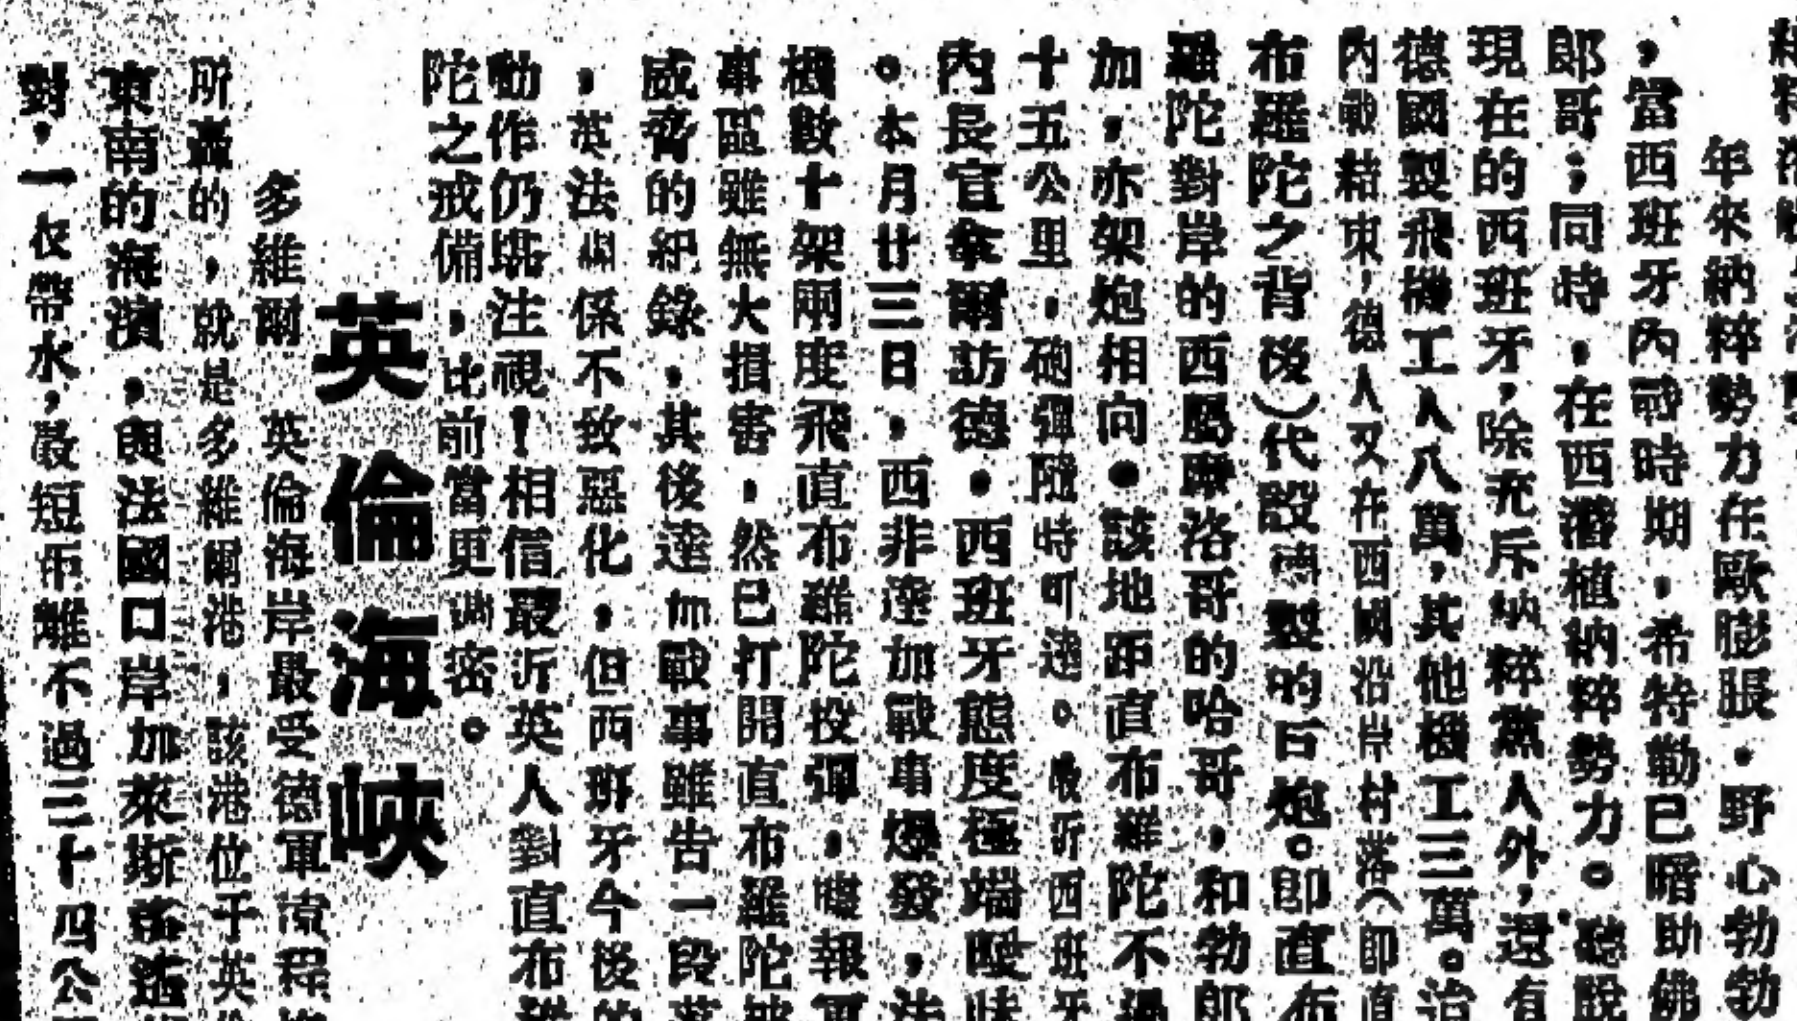 年來納粹勢力在歐膨脹．野心勃勃
，當西班牙內戰時期，希特勒已暗助佛
郎哥；同時，在西潛植納粹勢力。聽說
現在的西班牙，除充斥納粹黨人外，還有
德國製飛機工人八萬，其他機工三萬。迨
內戰結束，德人又在西國沿岸村落（即直
布羅陀之背後）代設德製的巨炮。即直布
羅陀對岸的西屬摩洛哥的哈哥，和勃郎
加，亦架炮相向．該地距直布羅陀不過
十五公里，砲彈隨時可達。最近西班牙
內長官拿爾訪德．西班牙態度極端曖昧
。本月廿三日，西非達加戰事爆發，法
機數十架兩度飛直布羅陀投彈，據報軍
事區雖無大損害．然已打開直布羅陀被
威脅的紀錄，其後達加戰事雖告一段落
，英法關係不致惡化，但西班牙今後的
動作仍堪注視！相信最近英人對直布羅
陀之戒備，比前當更謹密。
英倫海峽
多維爾 英倫海岸最受德軍
所轟的，就是多維爾港，該港位于英倫
東南的海濱，與法國口岸加萊斯遙遙相
對，一衣帶水，最短距離不過三十四公